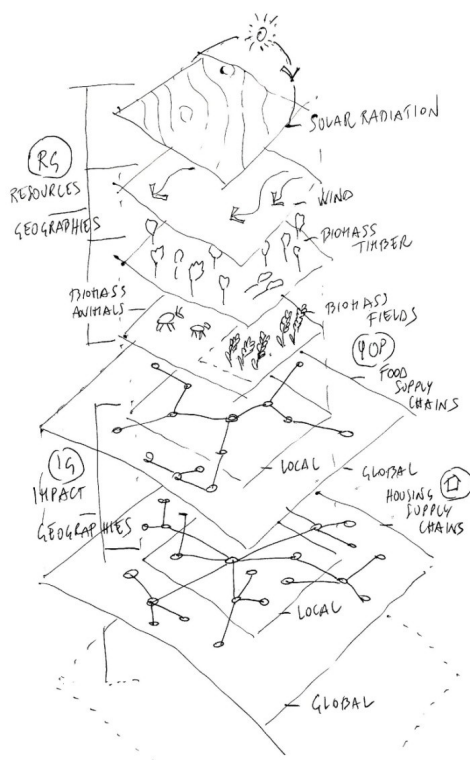 SOLAR RADIATION
RG
RESOURCES
GEOGRAPHIES
WIND
BIOMASS
TIMBER
BIOMASS
ANIMALS
BIOMASS
FIELDS
FOOD
SUPPLY
CHAINS
LOCAL
GLOBAL
IG
IMPACT
GEOGRAPHIES
HOUSING
SUPPLY
CHAINS
LOCAL
GLOBAL